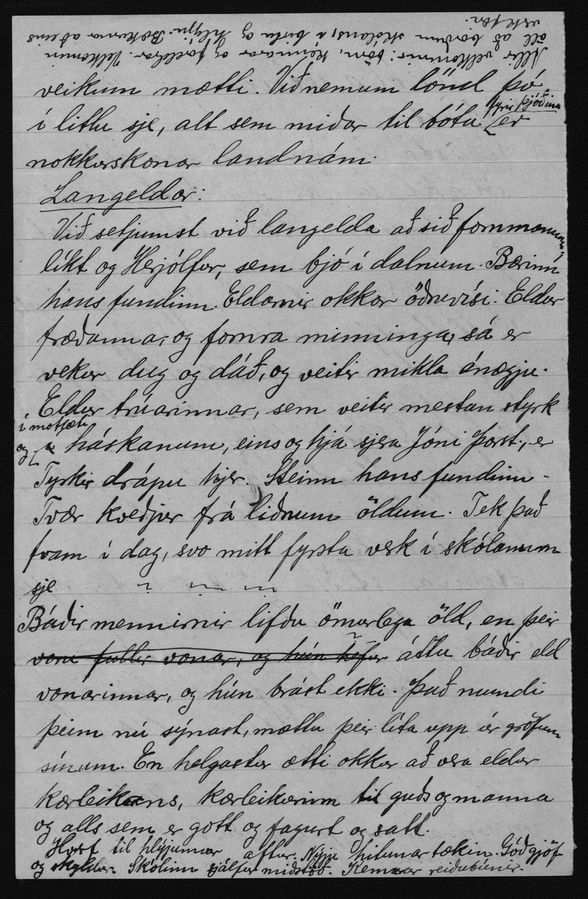 Allir velkomnir: börn, kennarar og foreldrar. Velkomin
öll að borðum skólans, í birtu og hlýju. Bækurnar að eins
veikum mætti. Við nemum lönd þó
í litlu sje, alt sem miðar til bóta fyrir þjóðina er
nokkurskonar landnám.
Langeldar:
Við setjumst við langelda að sið fornmanna,
líkt og Herjólfur, sem bjó í dalnum. Bærinn
hans fundinn. Eldarnir okkar öðruvísi. Eldur
fræðanna, og fornra minninga, sá er
vekur dug og dáð, og veitir mikla ánægju.
Eldur trúarinnar, sem veitir mestan styrk
í mótlæti
og háskanum, eins og hjá sjera Jóni Þorst, er
Tyrkir drápu hjer. Steinn hans fundinn.
Tvær kveðjur frá liðnum öldum. Tek það
fram í dag, svo mitt fyrsta verk í skólanum
sje
Báðir mennirnir lifðu ömurlega öld, en þeir
voru fullir vonar, og hún áttu báðir eld
vonarinnar, og hún brást ekki. Það mundi
þeim nú sýnast, mættu þeir líta upp úr gröfum
sínum. En helgastur ætti okkar að vera eldur
kærleikans, kærleikurinn til guðs og manna
og alls sem er gott og fagurt og satt.
Horf til hlýjunnar aftur. Nýju hitunartækin. Góð gjöf
og Skólinn sjálfur miðstöð. Kennarar reiðubúnir.